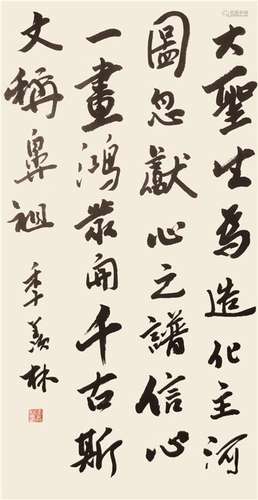 大聖生為造化主河
圖忽獻心之譜信心
一畫鴻蒙開千古斯
文稱鼻祖 季羨林